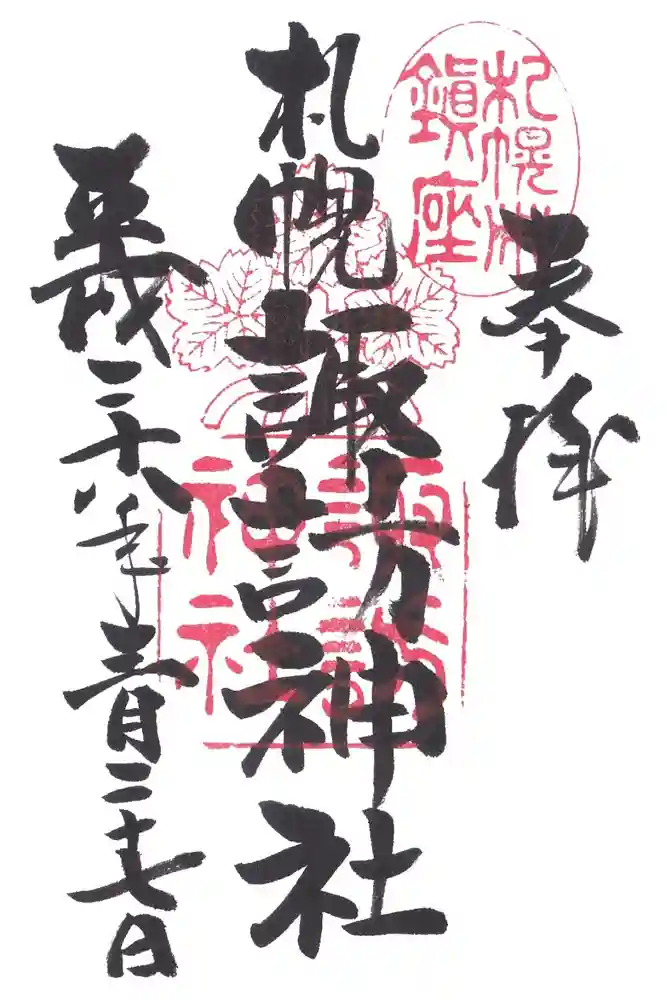 札幌市
鎮座
奉拝
札幌諏訪神社
諏訪
神社
平成二十八年五月二十七日